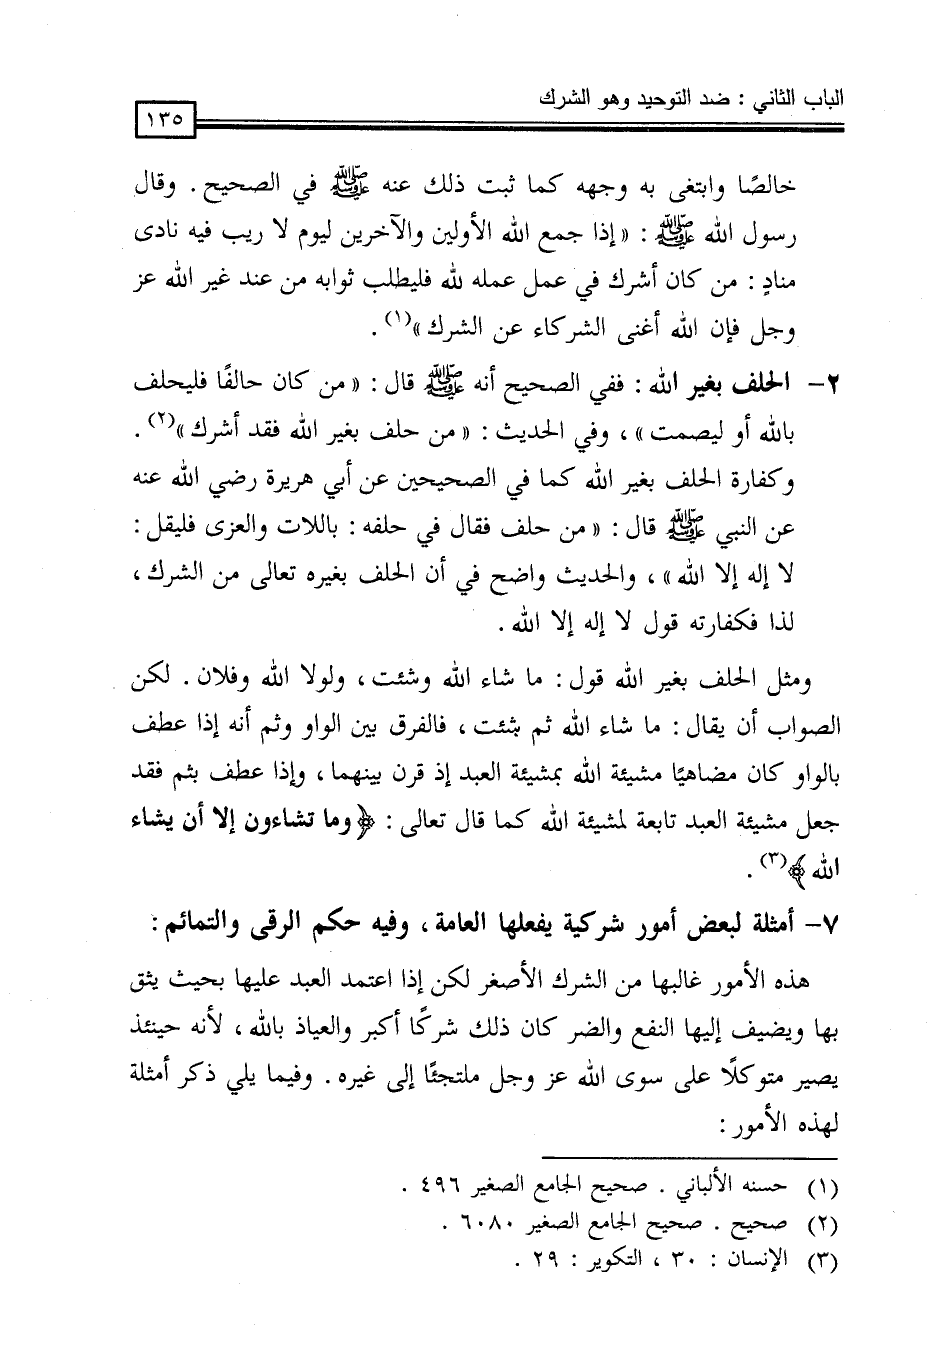 الباب الثاني : ضد التوحيد وهو الشرك
١٣٥
خالصًا وابتغى به وجهه كما ثبت ذلك عنه ﷺ في الصحيح . وقال
رسول الله ﷺ : « إذا جمع الله الأولين والآخرين ليوم لا ريب فيه نادى
منادٍ : من كان أشرك في عمل عمله لله فليطلب ثوابه من عند غير الله عز
وجل فإن الله أغنى الشركاء عن الشرك »(١) .
٢- الحلف بغير الله : ففي الصحيح أنه ﷺ قال : « من كان حالفًا فليحلف
بالله أو ليصمت » ، وفي الحديث : « من حلف بغير الله فقد أشرك »(٢) .
وكفارة الحلف بغير الله كما في الصحيحين عن أبي هريرة رضي الله عنه
عن النبي ﷺ قال : « من حلف فقال في حلفه : باللات والعزى فليقل :
لا إله إلا الله » ، والحديث واضح في أن الحلف بغيره تعالى من الشرك ،
لذا فكفارته قول لا إله إلا الله .
ومثل الحلف بغير الله قول : ما شاء الله وشئت ، ولولا الله وفلان . لكن
الصواب أن يقال : ما شاء الله ثم شئت ، فالفرق بين الواو وثم أنه إذا عطف
بالواو كان مضاهيًا مشيئة الله بمشيئة العبد إذ قرن بينهما ، وإذا عطف بثم فقد
جعل مشيئة العبد تابعة لمشيئة الله كما قال تعالى : ﴿ وما تشاءون إلا أن يشاء
الله ﴾(٣) .
٧- أمثلة لبعض أمور شركية يفعلها العامة ، وفيه حكم الرقى والتمائم :
هذه الأمور غالبها من الشرك الأصغر لكن إذا اعتمد العبد عليها بحيث يثق
بها ويضيف إليها النفع والضر كان ذلك شركًا أكبر والعياذ بالله ، لأنه حينئذ
يصير متوكلًا على سوى الله عز وجل ملتجئًا إلى غيره . وفيما يلي ذكر أمثلة
لهذه الأمور :
(١) حسنه الألباني . صحيح الجامع الصغير ٤٩٦ .
(٢) صحيح . صحيح الجامع الصغير ٦٠٨٠ .
(٣) الإنسان : ٣٠ ، التكوير : ٢٩ .